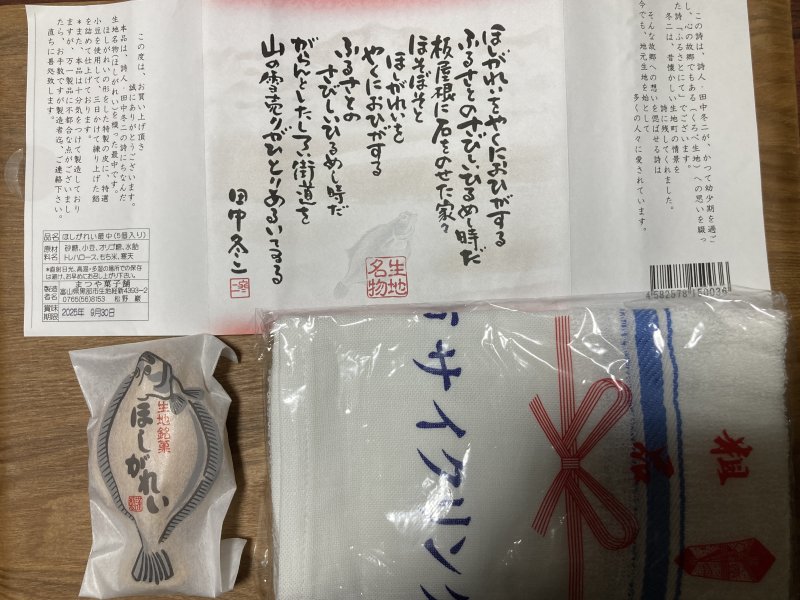 この詩は、詩人・田中冬二が、かつて幼少期を過ご
し、心の故郷でもある(くろべ生地)への思いを綴っ
た詩「ふるさとにて」でございます。
冬二は、昔懐かしい生地町の情景を
詩に残してくれました。
そんな故郷への想いを偲ばせる詩は
今でも、地元生地を始めとして
多くの人々に愛されています。
ほしがれいをやくにおひがする
ふるさとのさびしいひるめし時だ
板屋根に石をのせた家々
ほそぼそと
ほしがれいを
やくにおひがする
ふるさとの
さびしいひるめし時だ
がらんとしたしろい街道を
山の雪売りがひとりあるいてゐる
田中冬二
生地
名物
この度は、お買い上げ頂き
誠にありがとうございます。
本品は、詩人 田中冬二の詩にちなんだ
生地名物(ほしがれい)を模った最中です。
ほしがれいの形をした特製の皮に、特選
小豆を使用して、三日かけて練り上げた餡
を詰めて仕上げております。
*また、本品は十分気をつけて製造しており
ますが、万一製品に不都合な点がございまし
たら、お手数ですが製造者迄、ご連絡下さい。
直ちに善処致します。
品名 ほしがれい最中(5個入り)
原材料名 砂糖、小豆、オリゴ糖、水飴
トレハロース、もち米、寒天
*直射日光、高温・多湿の場所での保存
は避け、お早めにお召し上がり下さい。
製造者名 まつや菓子舗
富山県黒部市生地経新4393-2
0765(56)8153 松野 巌
賞味期限 2025年 9月30日
4582578150036
生地銘菓
ほしがれい
サイクリング
粗
品